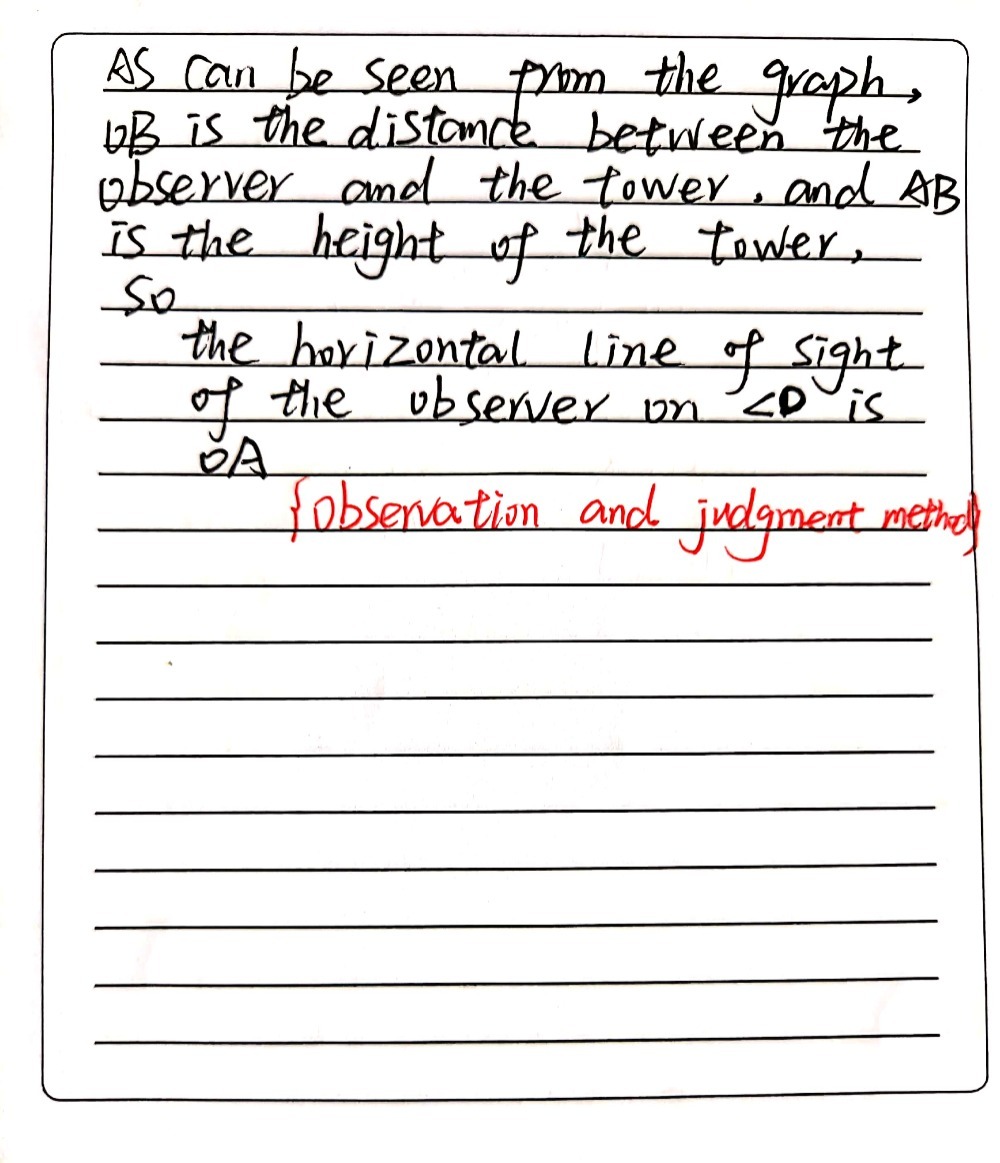 AS Can be seen from the graph,
OB is the distance between the
observer and the tower, and AB
is the height of the tower,
So
the horizontal line of sight
of the observer on ∠D is
OA
{observation and judgment method}